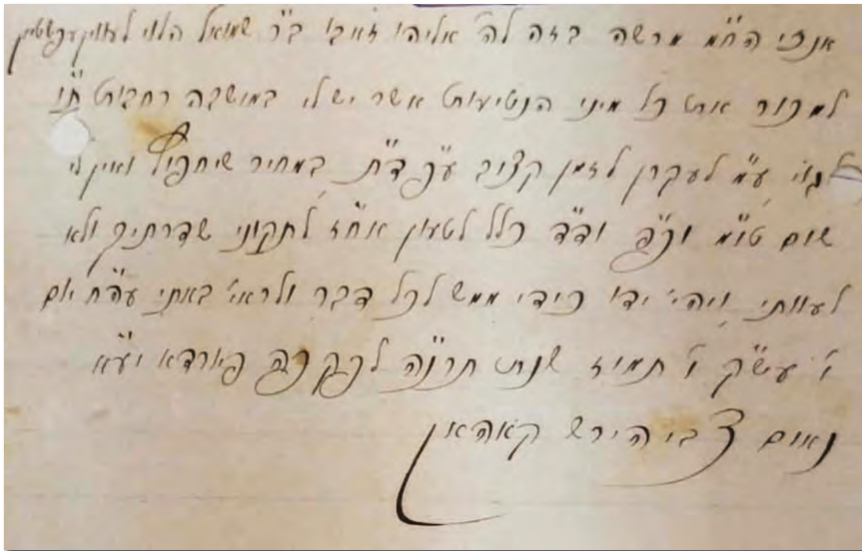 אנכי הח״מ מרשה בזה לה׳ אליהו זאב ב״ר שמואל הלוי לעווין עפשטיין
למכור את כל מיני הנטיעות אשר יש לי במושבה רחבות ת״ו
לגוי ע״מ לעקרן לזמן קצוב ע״פ ד״ת במחיר שיחפוץ ואין לי
שום טו״מ וק״פ ודו״ד כלל לטעון א״ז לתקוני שדרתיך ולא
לעוותי ויהי׳ ידו כידי ממש לכל דבר ולראי׳ באתי עה״ח יום
ו׳ עש״ק ו׳ תמוז שנת תרנ״ה לפ״ק פה פיורדא יע״א
נאום צבי הירש קאהאן